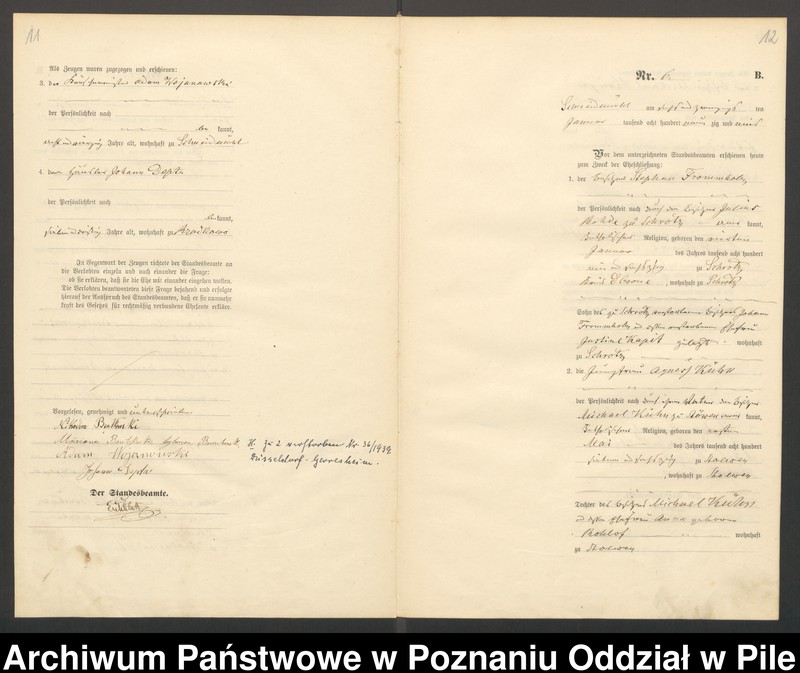 11
Als Zeugen waren zugezogen und erschienen:
3. der Adam Wojanowski
der Persönlichkeit nach
be kannt,
Jahre alt, wohnhaft zu Schneidemühl
4. der Häusler Johann Depta
der Persönlichkeit nach
be kannt,
Jahre alt, wohnhaft zu
In Gegenwart der Zeugen richtete der Standesbeamte an
die Verlobten einzeln und nach einander die Frage:
ob sie erklären, daß sie die Ehe mit einander eingehen wollen.
Die Verlobten beantworteten diese Frage bejahend und erfolgte
hierauf der Ausspruch des Standesbeamten, daß er sie nunmehr
kraft des Gesetzes für rechtmäßig verbundene Eheleute erkläre.
Vorgelesen, genehmigt und unterschrieben
Mariana geborene
Adam Wojanowski
Johann Depta
H. zu 2 verstorben Nr. 36/1939
Düsseldorf-Gerresheim.
Der Standesbeamte.
12
Nr. 6. B.
Schneidemühl am sechsundzwanzigs ten
Januar tausend acht hundert neun zig und eins
Vor dem unterzeichneten Standesbeamten erschienen heute
zum Zweck der Eheschließung:
1. der Besitzer Stephan Frommholz
der Persönlichkeit nach durch den Besitzer Julius
zu Schrotz aner kannt,
katholischer Religion, geboren den vierten
Januar des Jahres tausend acht hundert
neun und sechszig zu Schrotz
Kreis Dt. Crone, wohnhaft zu Schrotz
Sohn des zu Schrotz verstorbenen Besitzers Johann
Frommholz und dessen verstorbenen Ehefrau
Justine Kapit wohnhaft
zu Schrotz
2. die Jungfrau Agnes Kühn
der Persönlichkeit nach durch ihren Vater den Besitzer
Michael Kühn zu Stöwen aner kannt,
katholischer Religion, geboren den ersten
Mai des Jahres tausend acht hundert
sieben und sechszig zu Stoewen
, wohnhaft zu Stoewen
Tochter des Besitzers Michael Kühn
und dessen Ehefrau Anna geborene
Rohlof wohnhaft
zu Stoewen
Archiwum Państwowe w Poznaniu Oddział w Pile